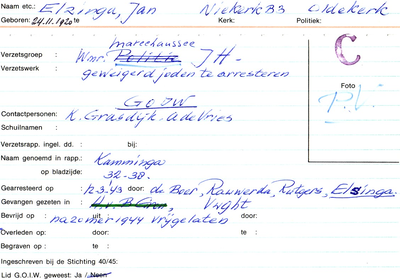 Naam etc.: Elzinga, Jan Niekerk 33 Oldekerk
Geboren: 24.11.1920 te Kerk: Politiek:
marechaussee
Verzetsgroep : Wmr. Politie JH.
Verzetswerk : geweigerd joden te arresteren
C
Foto
P.V.
G.O.I.W
Contactpersonen: K. Grasdijk - A de Vries
Schuilnaam :
Verzetsrapp. ingel. dd. : bij:
Naam genoemd in rapp.: Kamminga
op bladzijde: 32-38.
Gearresteerd op : 12-3-43 door: de Boer, Rauwerda, Rutgers, Elsinga.
Gevangen gezeten in : Vught
Bevrijd op : uit door:
na zomer 1944 vrijgelaten
Overleden op: te: door:
Begraven op : te :
Ingeschreven bij de Stichting 40/45:
Lid G.O.I.W. geweest: Ja / Neen